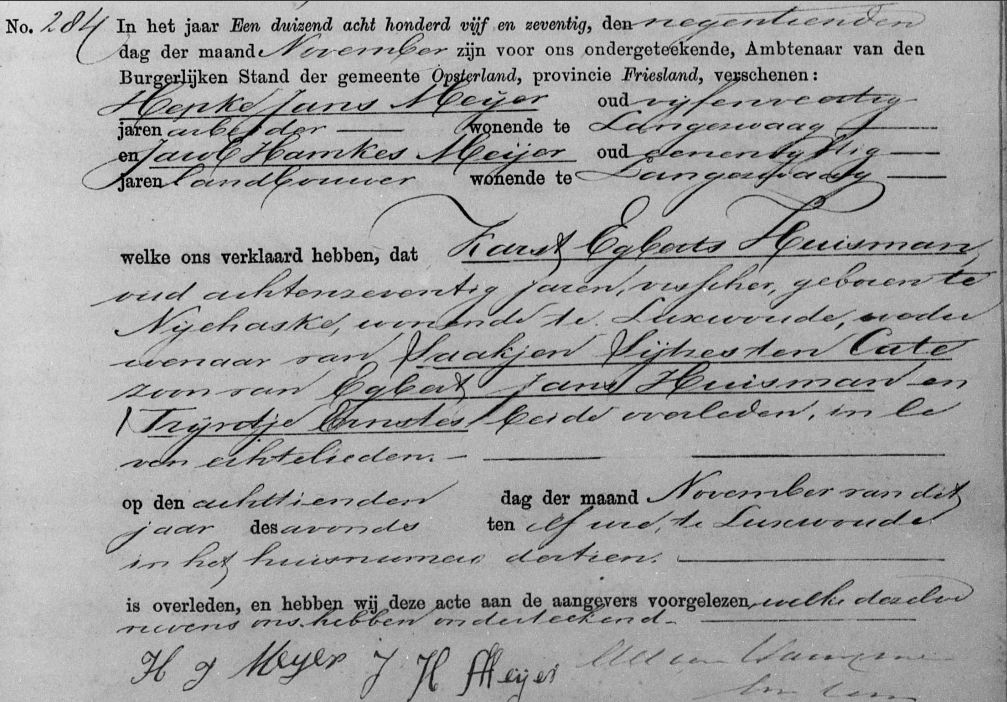 No. 284 In het jaar Een duizend acht honderd vijf en zeventig, den negentienden
dag der maand November zijn voor ons ondergeteekende, Ambtenaar van den
Burgerlijken Stand der gemeente Opsterland, provincie Friesland, verschenen:
Hepke Jans Meijer oud vijfenveertig
jaren arbeider wonende te Langezwaag
en Jacob Hamkes Meijer oud eenenvijftig
jaren landbouwer wonende te Langezwaag
welke ons verklaard hebben, dat Karst Egberts Huisman
oud achtenzeventig jaren, visscher, geboren te
Nijehaske, wonende te Luxwoude, weduw
wenaar van Saakjen Sijtzes ten Cate
zoon van Egbert Jans Huisman en
Trijntje Ernstes, beide overleden, in le
ven echtelieden.
op den achttienden dag der maand November van dit
jaar des avonds ten elf ure, te Luxwoude
in het huis numero dertien.
is overleden, en hebben wij deze acte aan de aangevers voorgelezen, welke dezelve
nevens ons hebben onderteekend.
H J Meyer J H Meyer